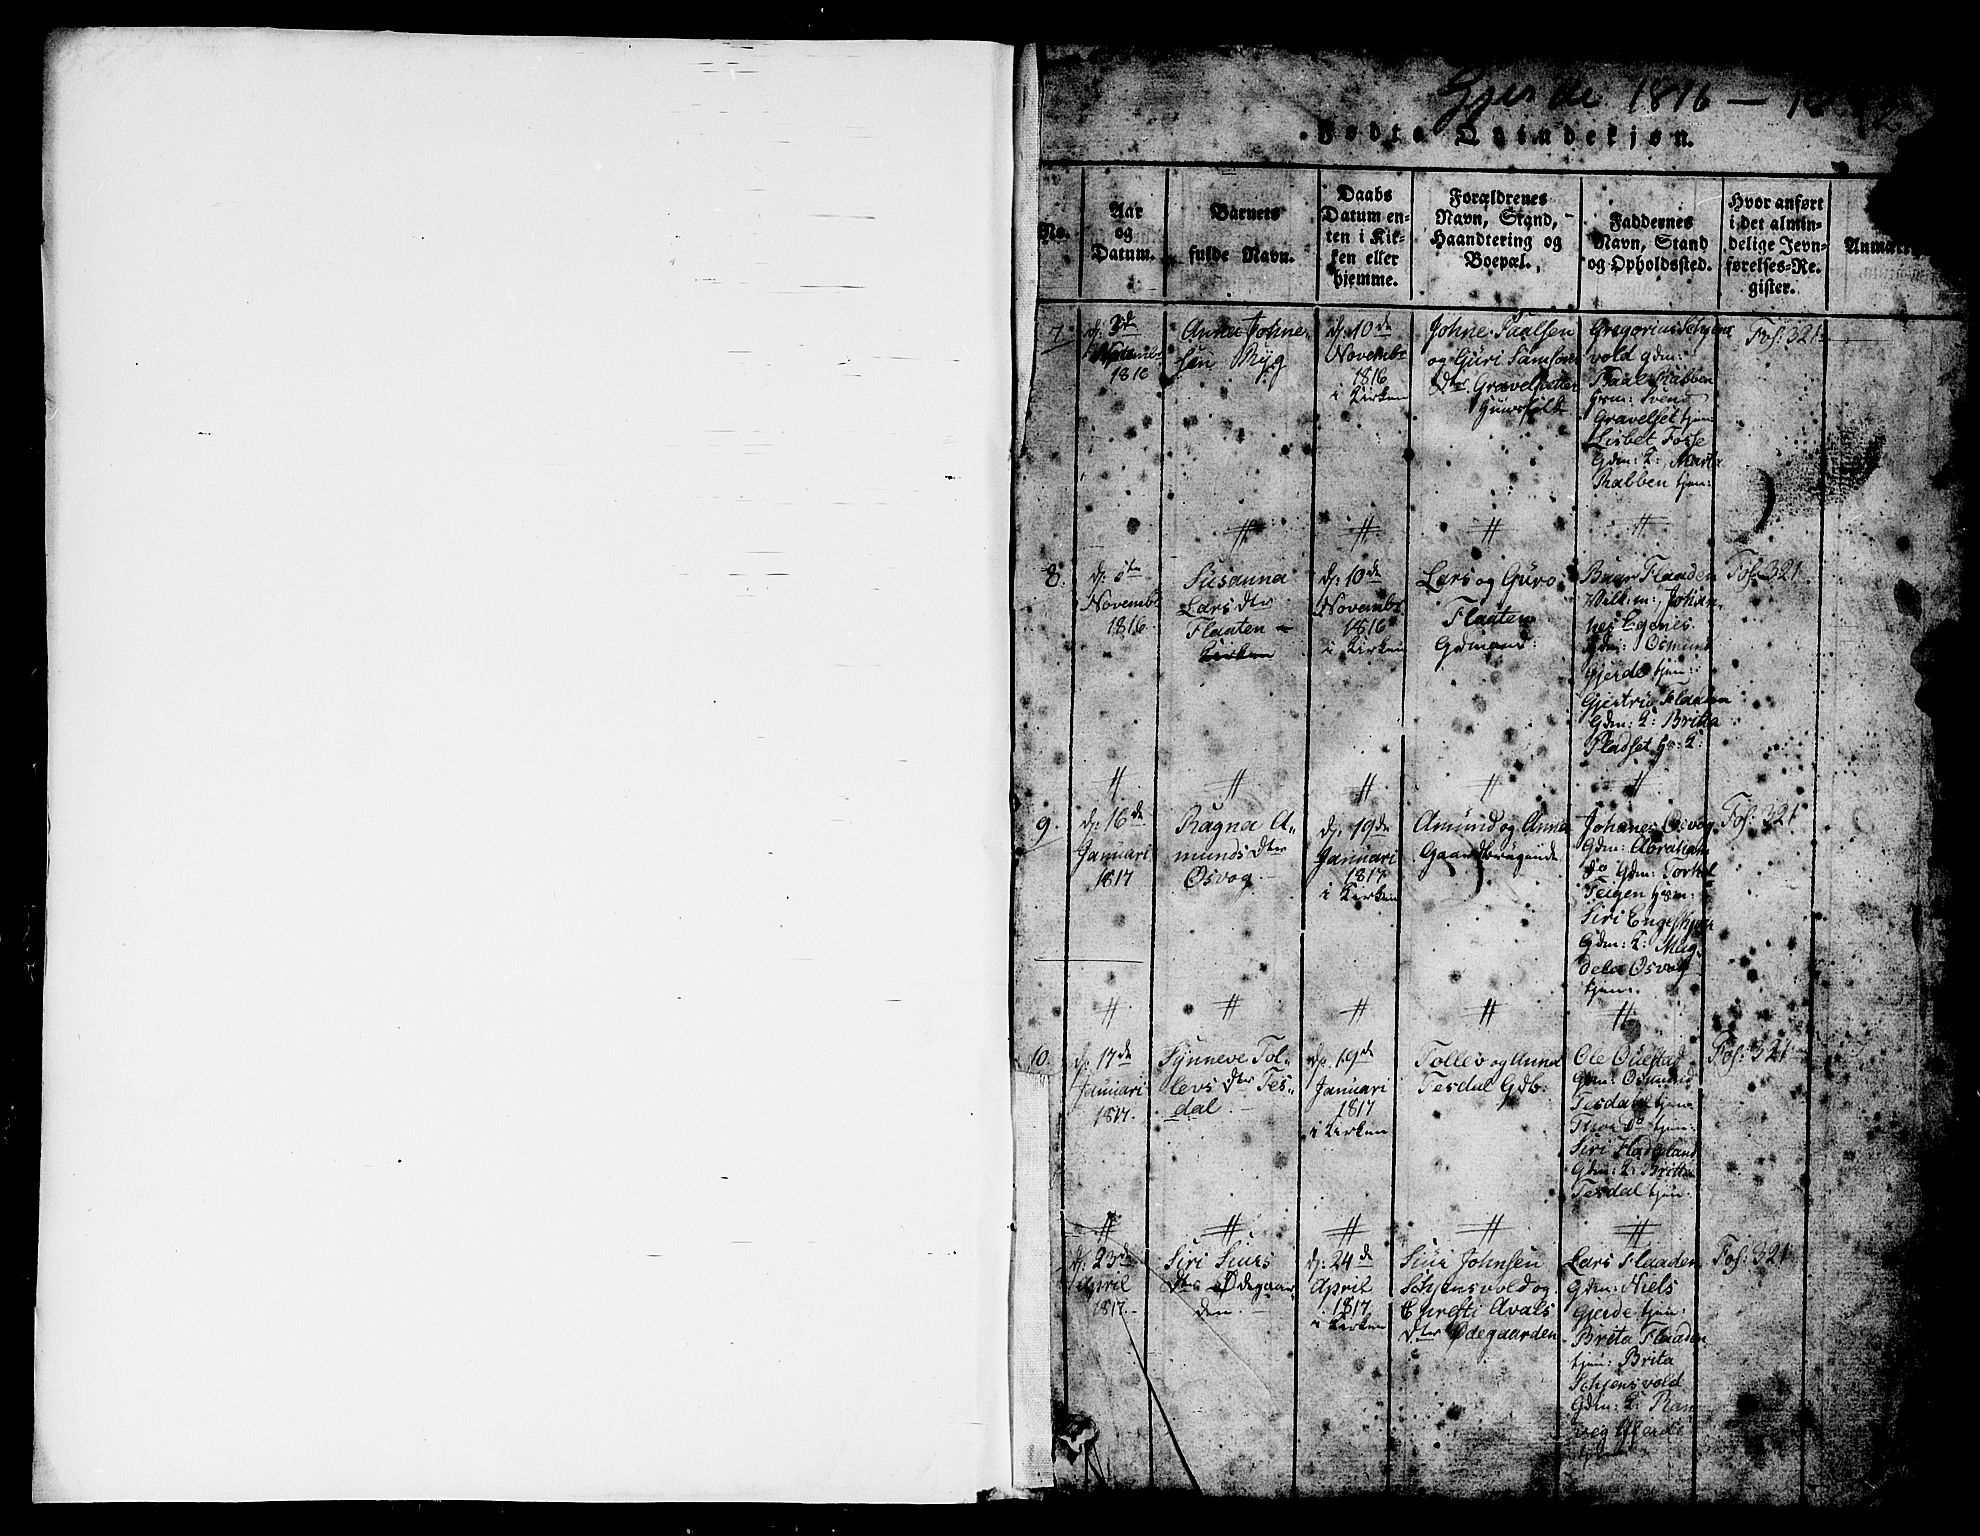 Gjerde 1816 —
2.
Fødte Qvindekjøn.
No.
Aar
og
Datum.
Barnets
fulde Navn.
Daabs
Datum en-
ten i Kir-
ken eller
hjemme.
Forældrenes
Navn, Stand,
Haandtering og
Boepæl.
Faddernes
Navn, Stand
og Opholdssted.
Hvor anført
i det almin-
delige Jevn-
førelses-Re-
gister.
Anmær
7.
d: 3d
1816
Anna Johne-
sen Myg
d: 10de
Novembr
1816
i Kirken
Johne Paalsen
og Guri Samsons
Dter Gravelsetter
Gregorius Schjens
vold gdm:
Paal Rabben
hsm: Svend
Gravelset tjen:
Lisbet Fosse
Gdm: K: Marta
Rabben tjen:
Fol: 321
8.
d: 5te
Novembr
1816
Susanna
Lars dter
Flaaten —
Kirken
d: 10de
Novembr
1816
i Kirken
Lars og Guro
Flaaten
Gdmand:
Baar Flaaden
Johan-
nes Egenes
Gdm: Osmund
Gjerde tjen:
Gjertrü Flaaden
Gdm: K: Britha
Pladset hs: K:
Fol: 321
9.
d: 16de
Januari
1817
Ragna A-
munds Dter
Osvog —
d: 19de
Januari
1817
i Kirken
Amund og Anna
Gaardbrugende
Johanes Osvog
Gdm: Abraham
do Gdm: Torkel
Teigen hsm:
Siri Engeskjær
Gdm: K: Mag-
dela Osvog
tjen:
Fol: 321
10.
d: 17de
Januari
1817.
Synneve Tol-
levs Dter Tes-
dal. —
d: 19de
Januari
1817
i Kirken
Tollev og Anna
Tesdal Gdb:
Ole Ouestad
Gdm: Osmund
Tesdal tjen:
Thor do tjen:
Siri Hadeland
Gdm: K: Britha
Tesdal tjen:
Fol: 321
d: 23de
April
1817.
Siri Siurs
Dter Ødegaar-
den. —
d: 24de
April
1817
i Kirken
Siur Johnsen
Schjensvold og
Christi Avals
Dter Ødegaarden
Lars Flaaden
Gdm: Niels
Gjerde tjen:
Brita Flaaden
tjen: Brita
Schjensvold
Gdm: K: Ran
veg Gjerde
Fol: 321